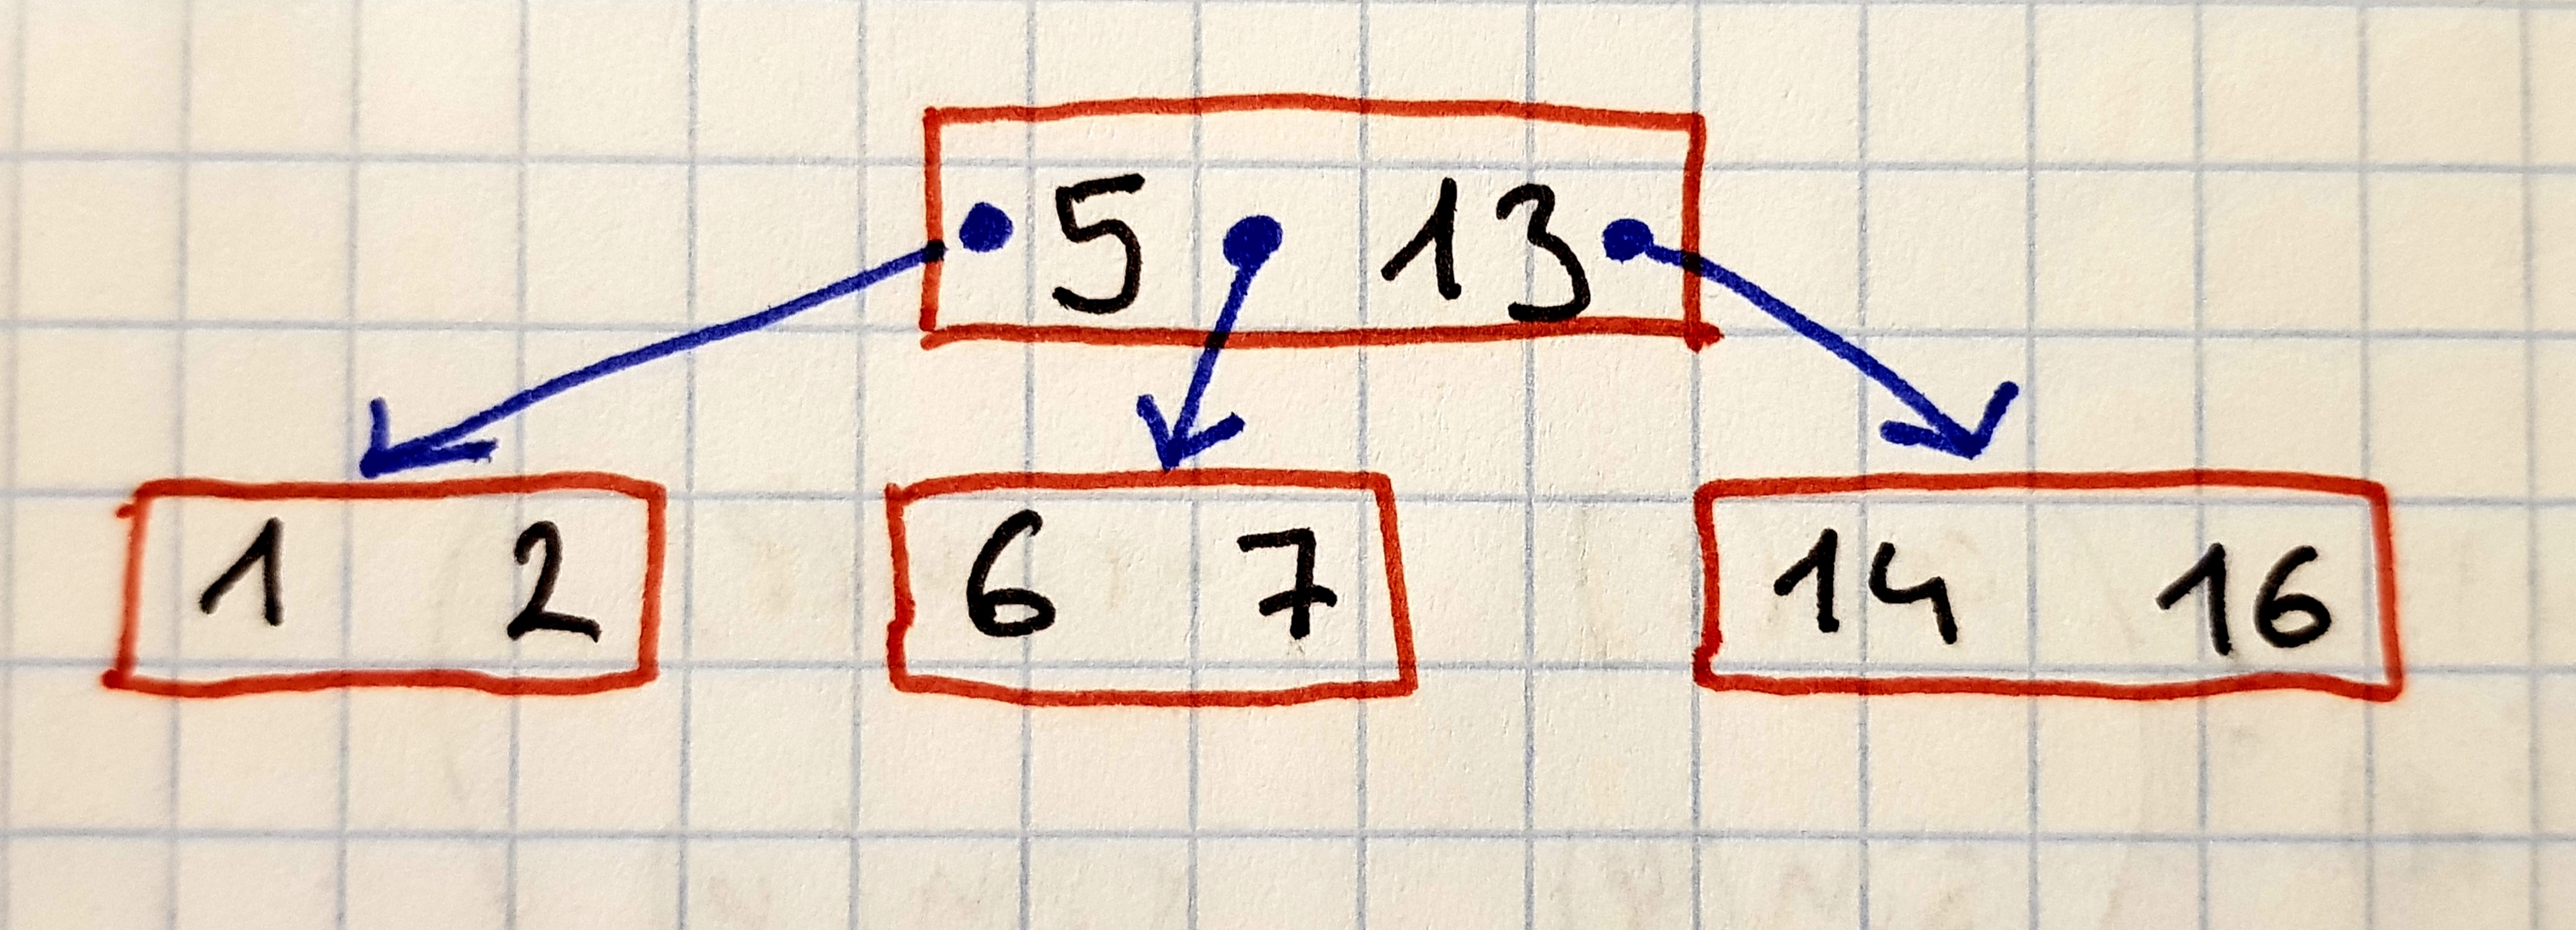 5 13
1 2 6 7 14 16